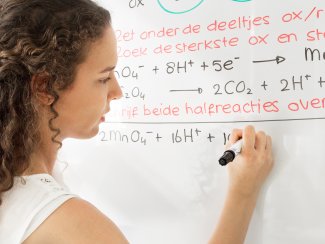 ox
Zet onder de deeltjes ox/r
Zoek de sterkste ox en st
nO₄⁻ + 8H⁺ + 5e⁻ → M
₂O₄ → 2CO₂ + 2H⁺ +
rijf beide halfreacties over
2MnO₄⁻ + 16H⁺ + 1